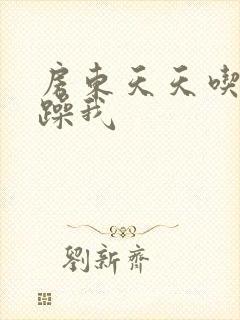 房東天天喫
躁我
劉新齊